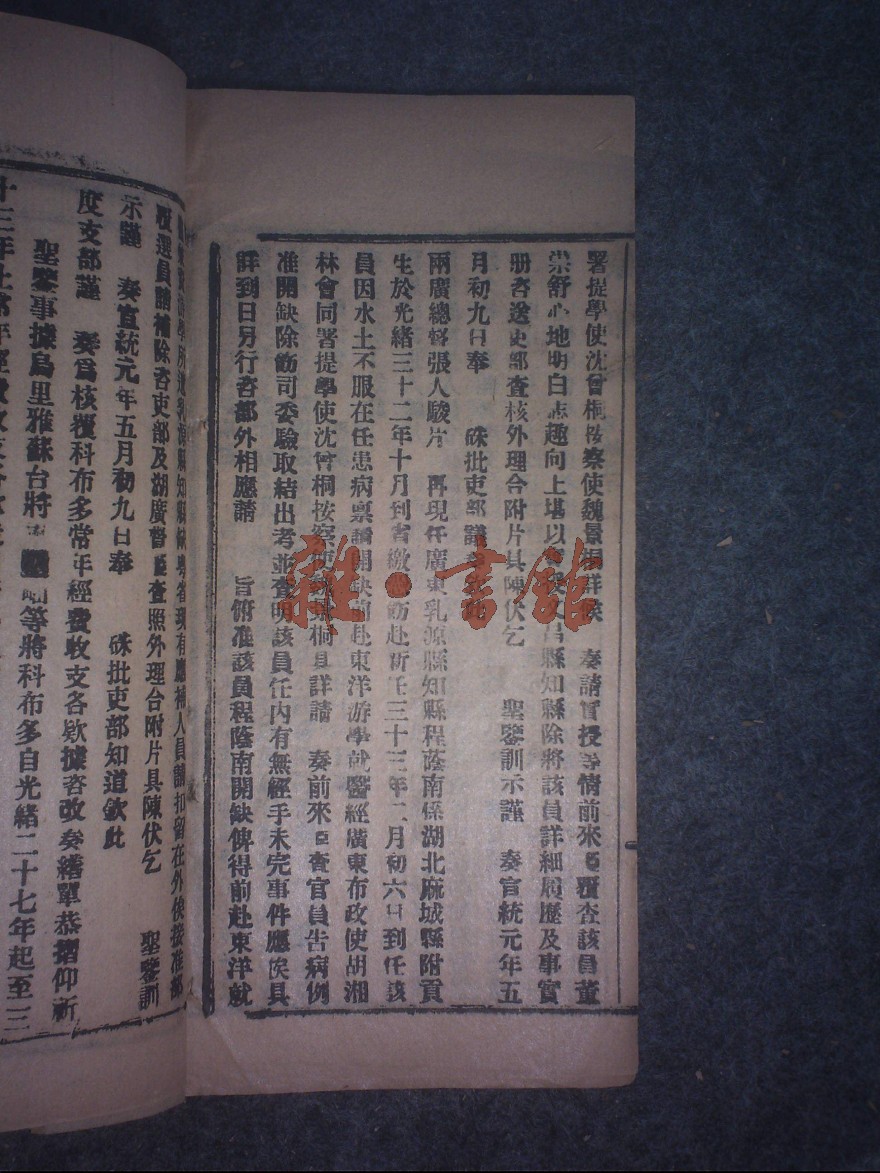 署提學使沈曾桐按察使魏景桐詳候　奏請實授等情前來臣覆查該員董
崇舒心地明白志趣向上堪以昌縣知縣除將該員詳細履歷及事實
册咨送吏部查核外理合附片具陳伏乞　聖鑒訓示謹　奏宣統元年五
月初九日奉　硃批吏部議
兩廣總督張人駿片　再現任廣東乳源縣知縣程蔭南係湖北麻城縣附貢
生於光緒三十二年十月到省繳飭赴新任三十三年二月初六日到任該
員因水土不服在任患病禀請開缺前赴東洋游學就醫經廣東布政使胡湘
林會同署提學使沈曾桐按察使桐具詳請　奏前來臣查官員告病例
准開缺除飭司委驗取結出考並查明該員任內有無經手未完事件應俟具
詳到日另行咨部外相應請　旨俯准該員程蔭南開缺俾得前赴東洋就
知縣缺粤省現有應補人員請扣留在外俟接准部
覆選員請補除咨吏部及湖廣督臣查照外理合附片具陳伏乞　聖鑒訓
示謹　奏宣統元年五月初九日奉　硃批吏部知道欽此
度支部謹　奏爲核覆科布多常年經費收支各欵據咨改奏繕單恭摺仰祈
聖鑒事據烏里雅蘇台將等將科布多自光緒二十七年起至三
十三年止常年經費收支
雜·書館